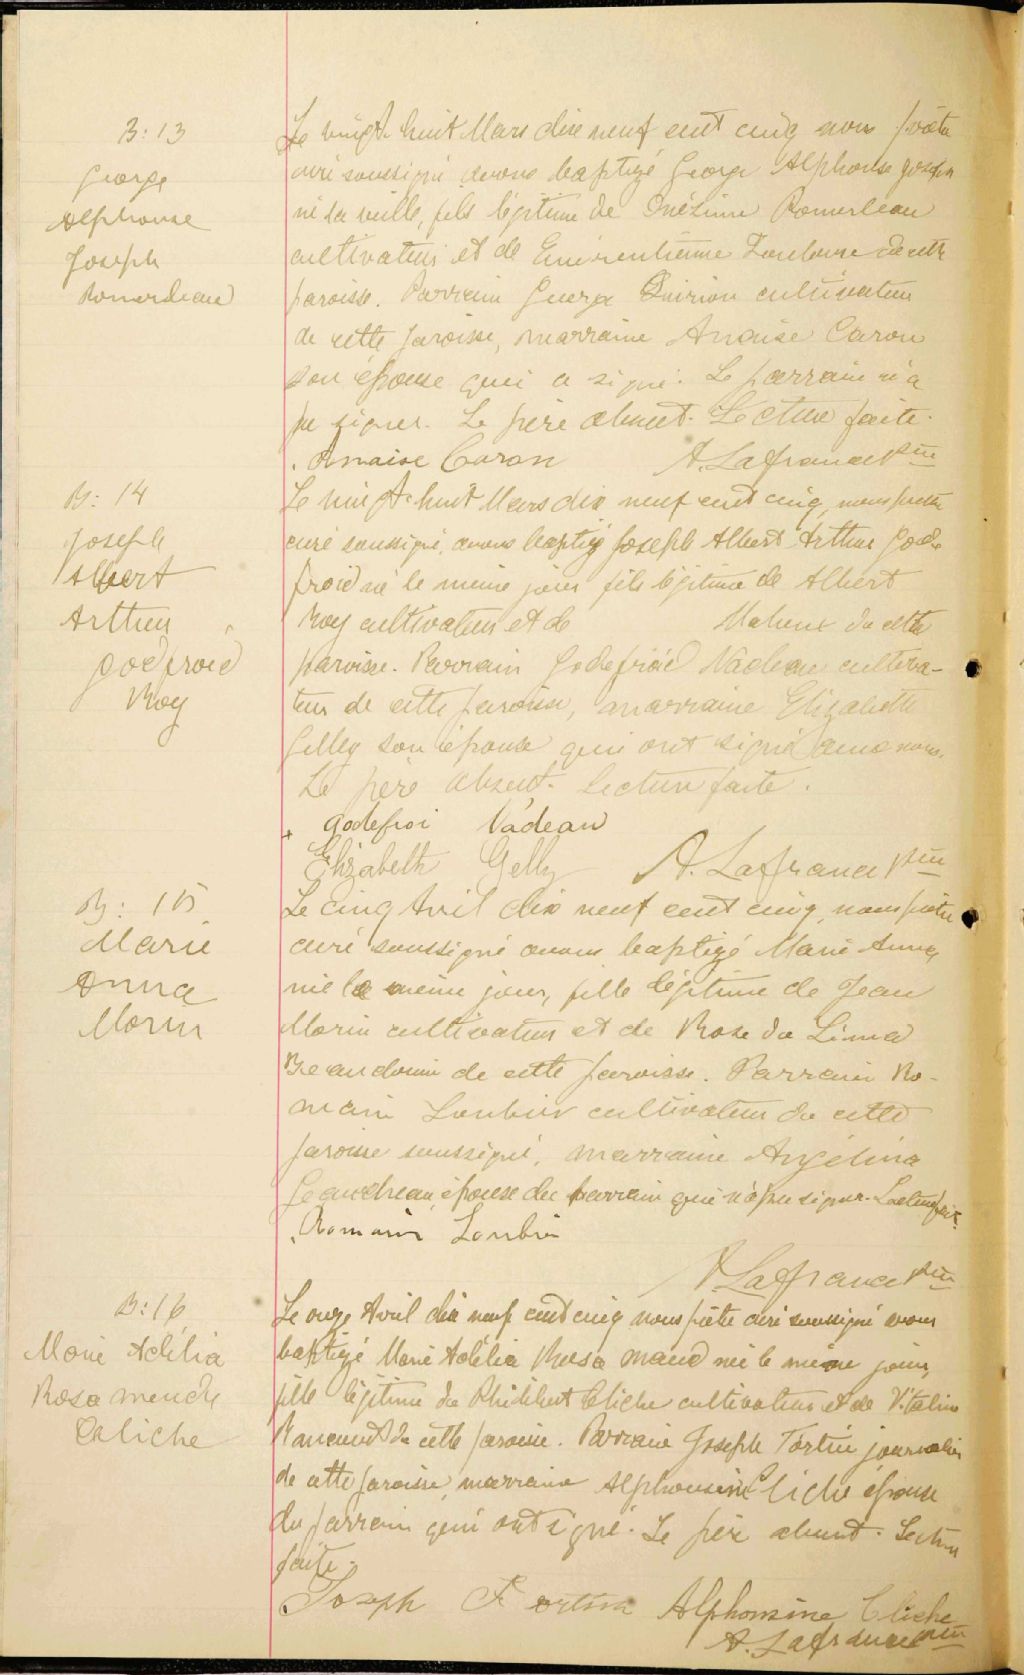 B: 13
George
Alphonse
Joseph
Romerleau
Le vingt huit Mars dix neuf cent cinq nous prêtre
curé soussigné avons baptizé George Alphonse Joseph
né la veille, fils légitime de Onésime Pomerleau
cultivateur et de Toulouse de cette
paroisse. Parrain George Quirion cultivateur
de cette paroisse, marraine Anaise Caron
son épouse qui a signé. Le parrain n'a
pu signer. Le père absent. Lecture faite.
Anaise Caron A. Lafrance ptre
B: 14
Joseph
Albert
Arthur
Godfroid
Roy
Le vingt huit Mars dix neuf cent cinq, nous prêtre
curé soussigné, avons baptizé Joseph Albert Arthur Gode
froid né le même jour fils légitime de Albert
Roy cultivateur et de Maheux de cette
paroisse. Parrain Godefroid Nadeau cultiva-
teur de cette paroisse, marraine Elizabeth
Gelley son épouse qui ont signé avec nous.
Le père absent. Lecture faite.
Godefroi Nadeau
Elizabeth Gelly A. Lafrance ptre
B: 15
Marie
Anna
Morin
Le cinq Avril dix neuf cent cinq, nous prêtre
curé soussigné avons baptizé Marie Anna
née le même jour, fille légitime de Jean
Morin cultivateur et de Rose de Lima
Beaudoin de cette paroisse. Parrain Ro-
main Loubier cultivateur de cette
paroisse soussigné, marraine Angélina
Gaudreau épouse du parrain qui n'a pu signer. Lecture faite.
Romain Loubier
A. Lafrance ptre
B: 16
Marie Adélia
Rosa
Cliche
Le onze Avril dix neuf cent cinq nous prêtre curé soussigné avons
baptizé Marie Adélia Rosa née le même jour,
fille légitime de Philibert Cliche cultivateur et de Vitaline
de cette paroisse. Parrain Joseph Fortin journalier
de cette paroisse, marraine Alphonsine Cliche épouse
du parrain qui ont signé. Le père absent. Lecture
faite.
Joseph Fortin Alphonsine Cliche
A. Lafrance ptre